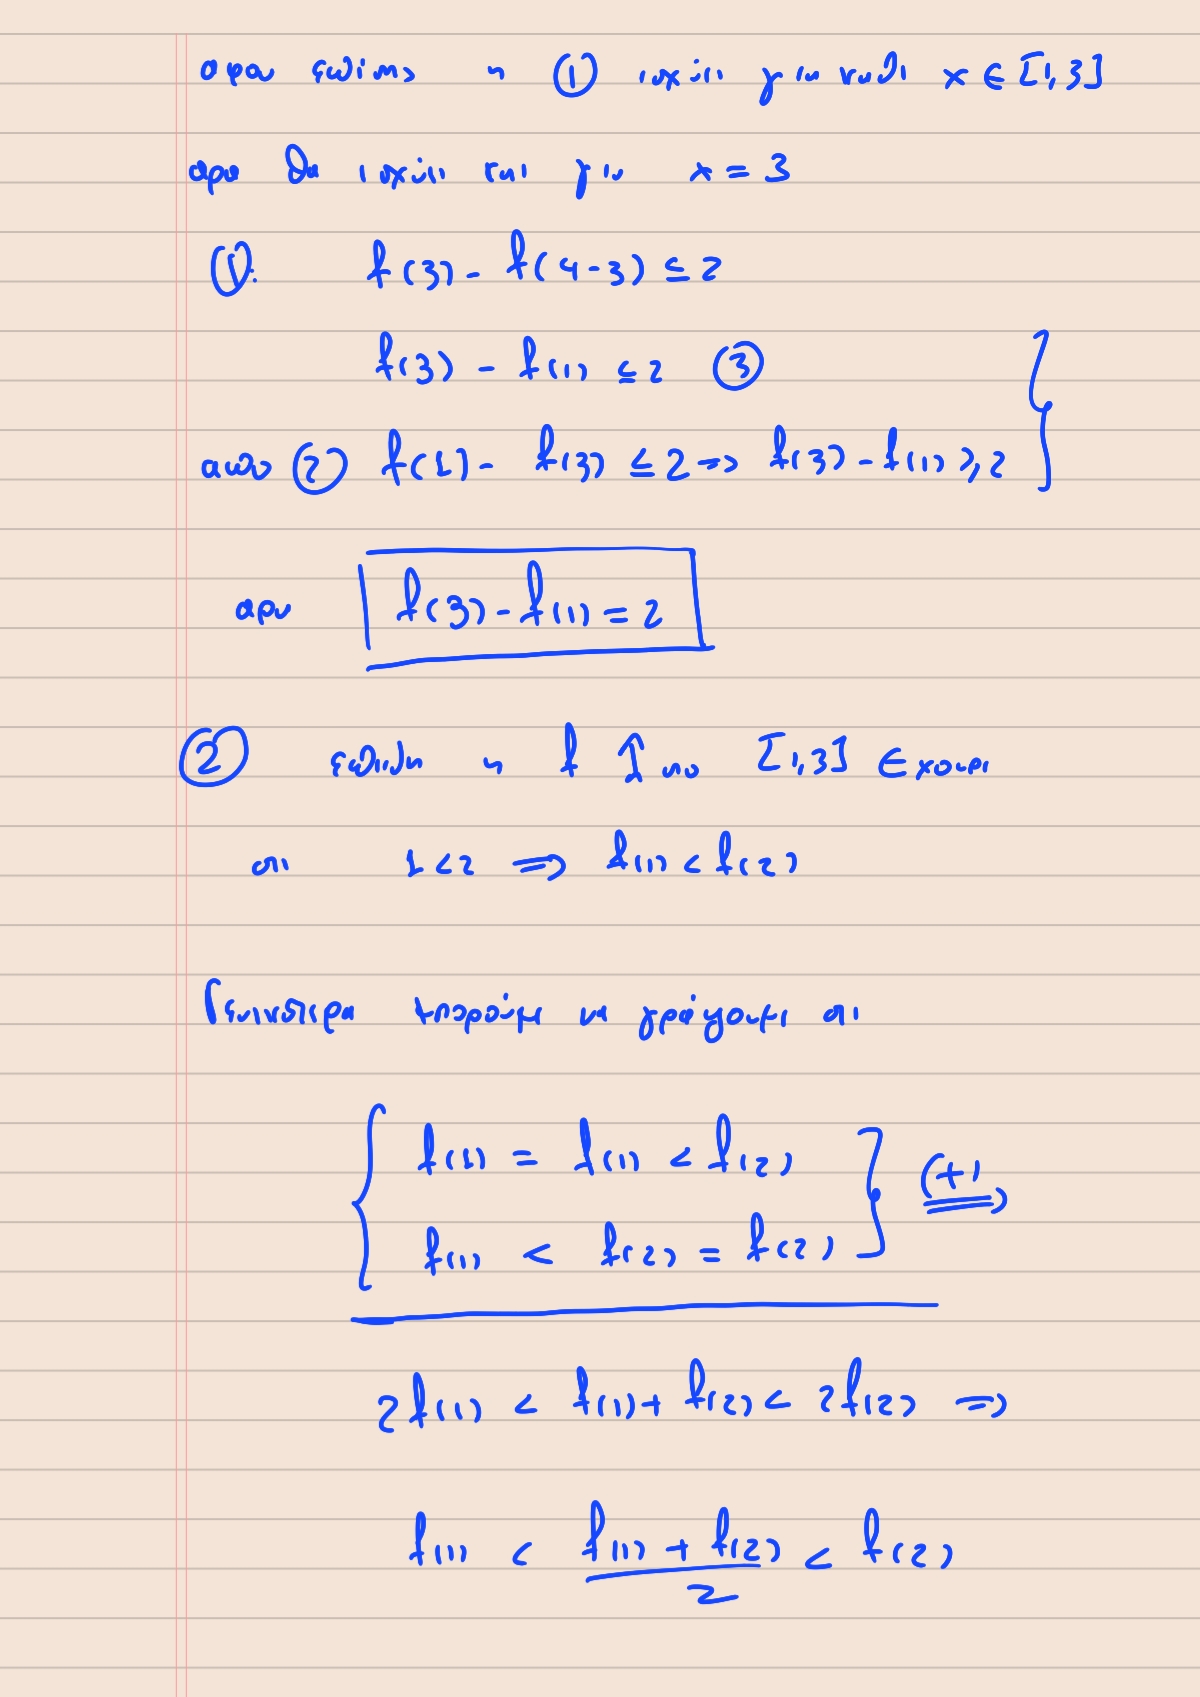 αφου επίσης η ① ισχύει για καθε x ∈ [1,3]
αρα θα ισχύει και για x = 3
(1): f(3) - f(4-3) ≤ 2
f(3) - f(1) ≤ 2 ③
απο ② f(1) - f(3) ≤ 2 => f(3) - f(1) ≥ 2
αρα f(3) - f(1) = 2
② επειδη η f ↑ στο [1,3] Εχουμε
οτι 1 < 2 => f(1) < f(2)
Γενικότερα μπορούμε να γράψουμε οτι
f(1) = f(1) < f(2)
(+)
f(1) < f(2) = f(2)
2f(1) < f(1) + f(2) < 2f(2) =>
f(1) < \frac{f(1) + f(2)}{2} < f(2)